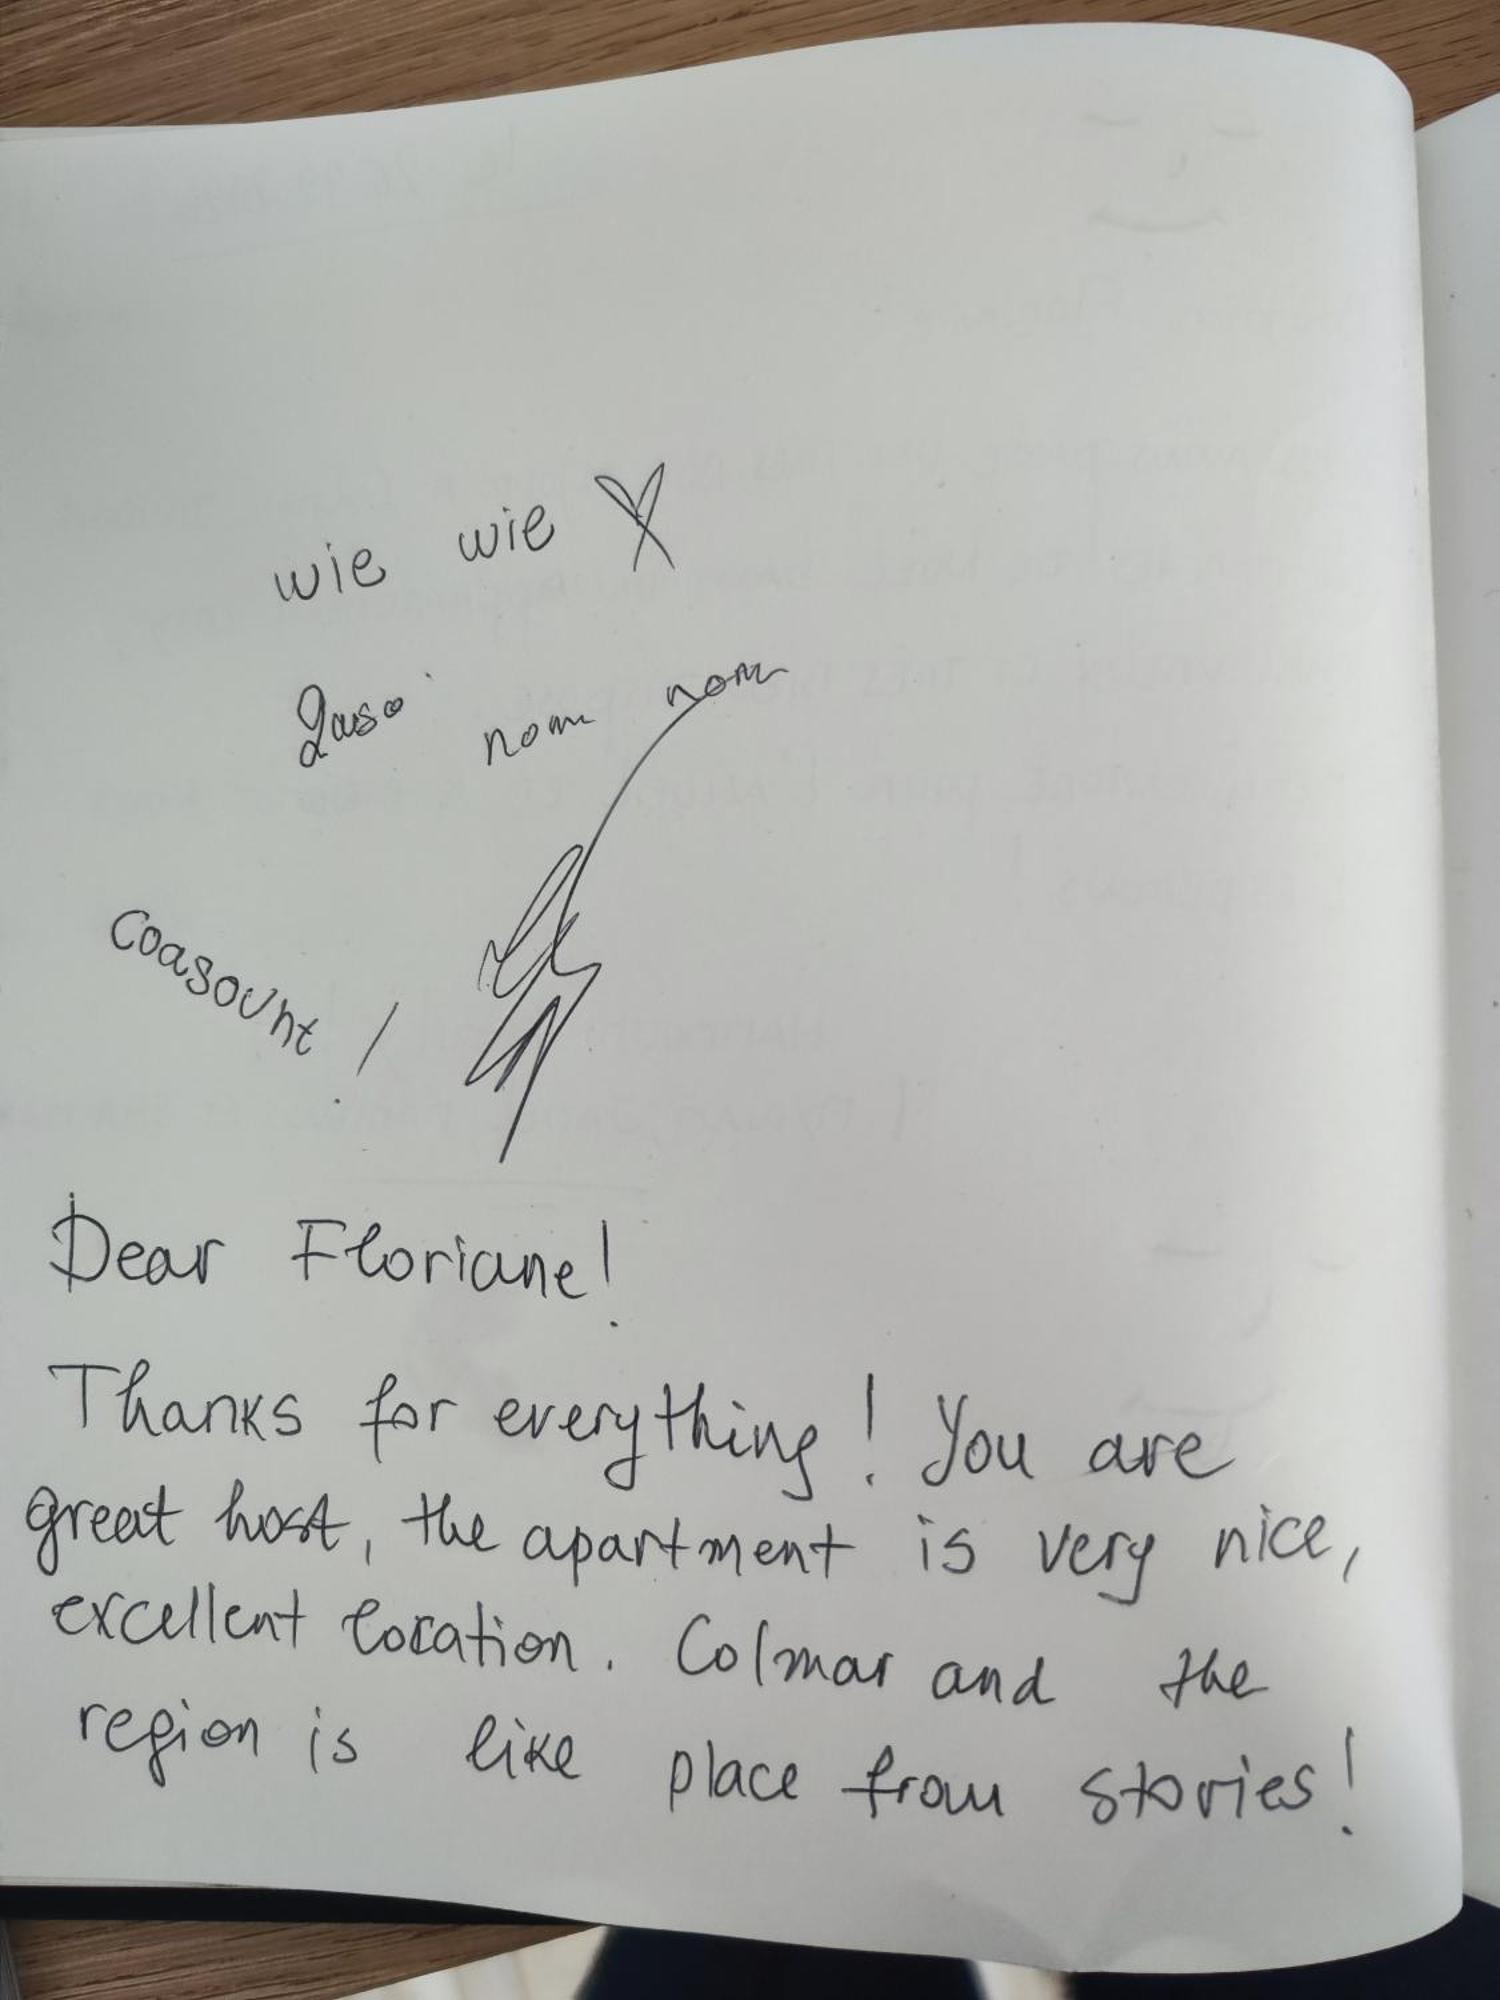 wie wie
nom nom
coasount!
Dear Floriane!
Thanks for everything! You are
great host, the apartment is very nice,
excellent location. Colmar and the
region is like place from stories!